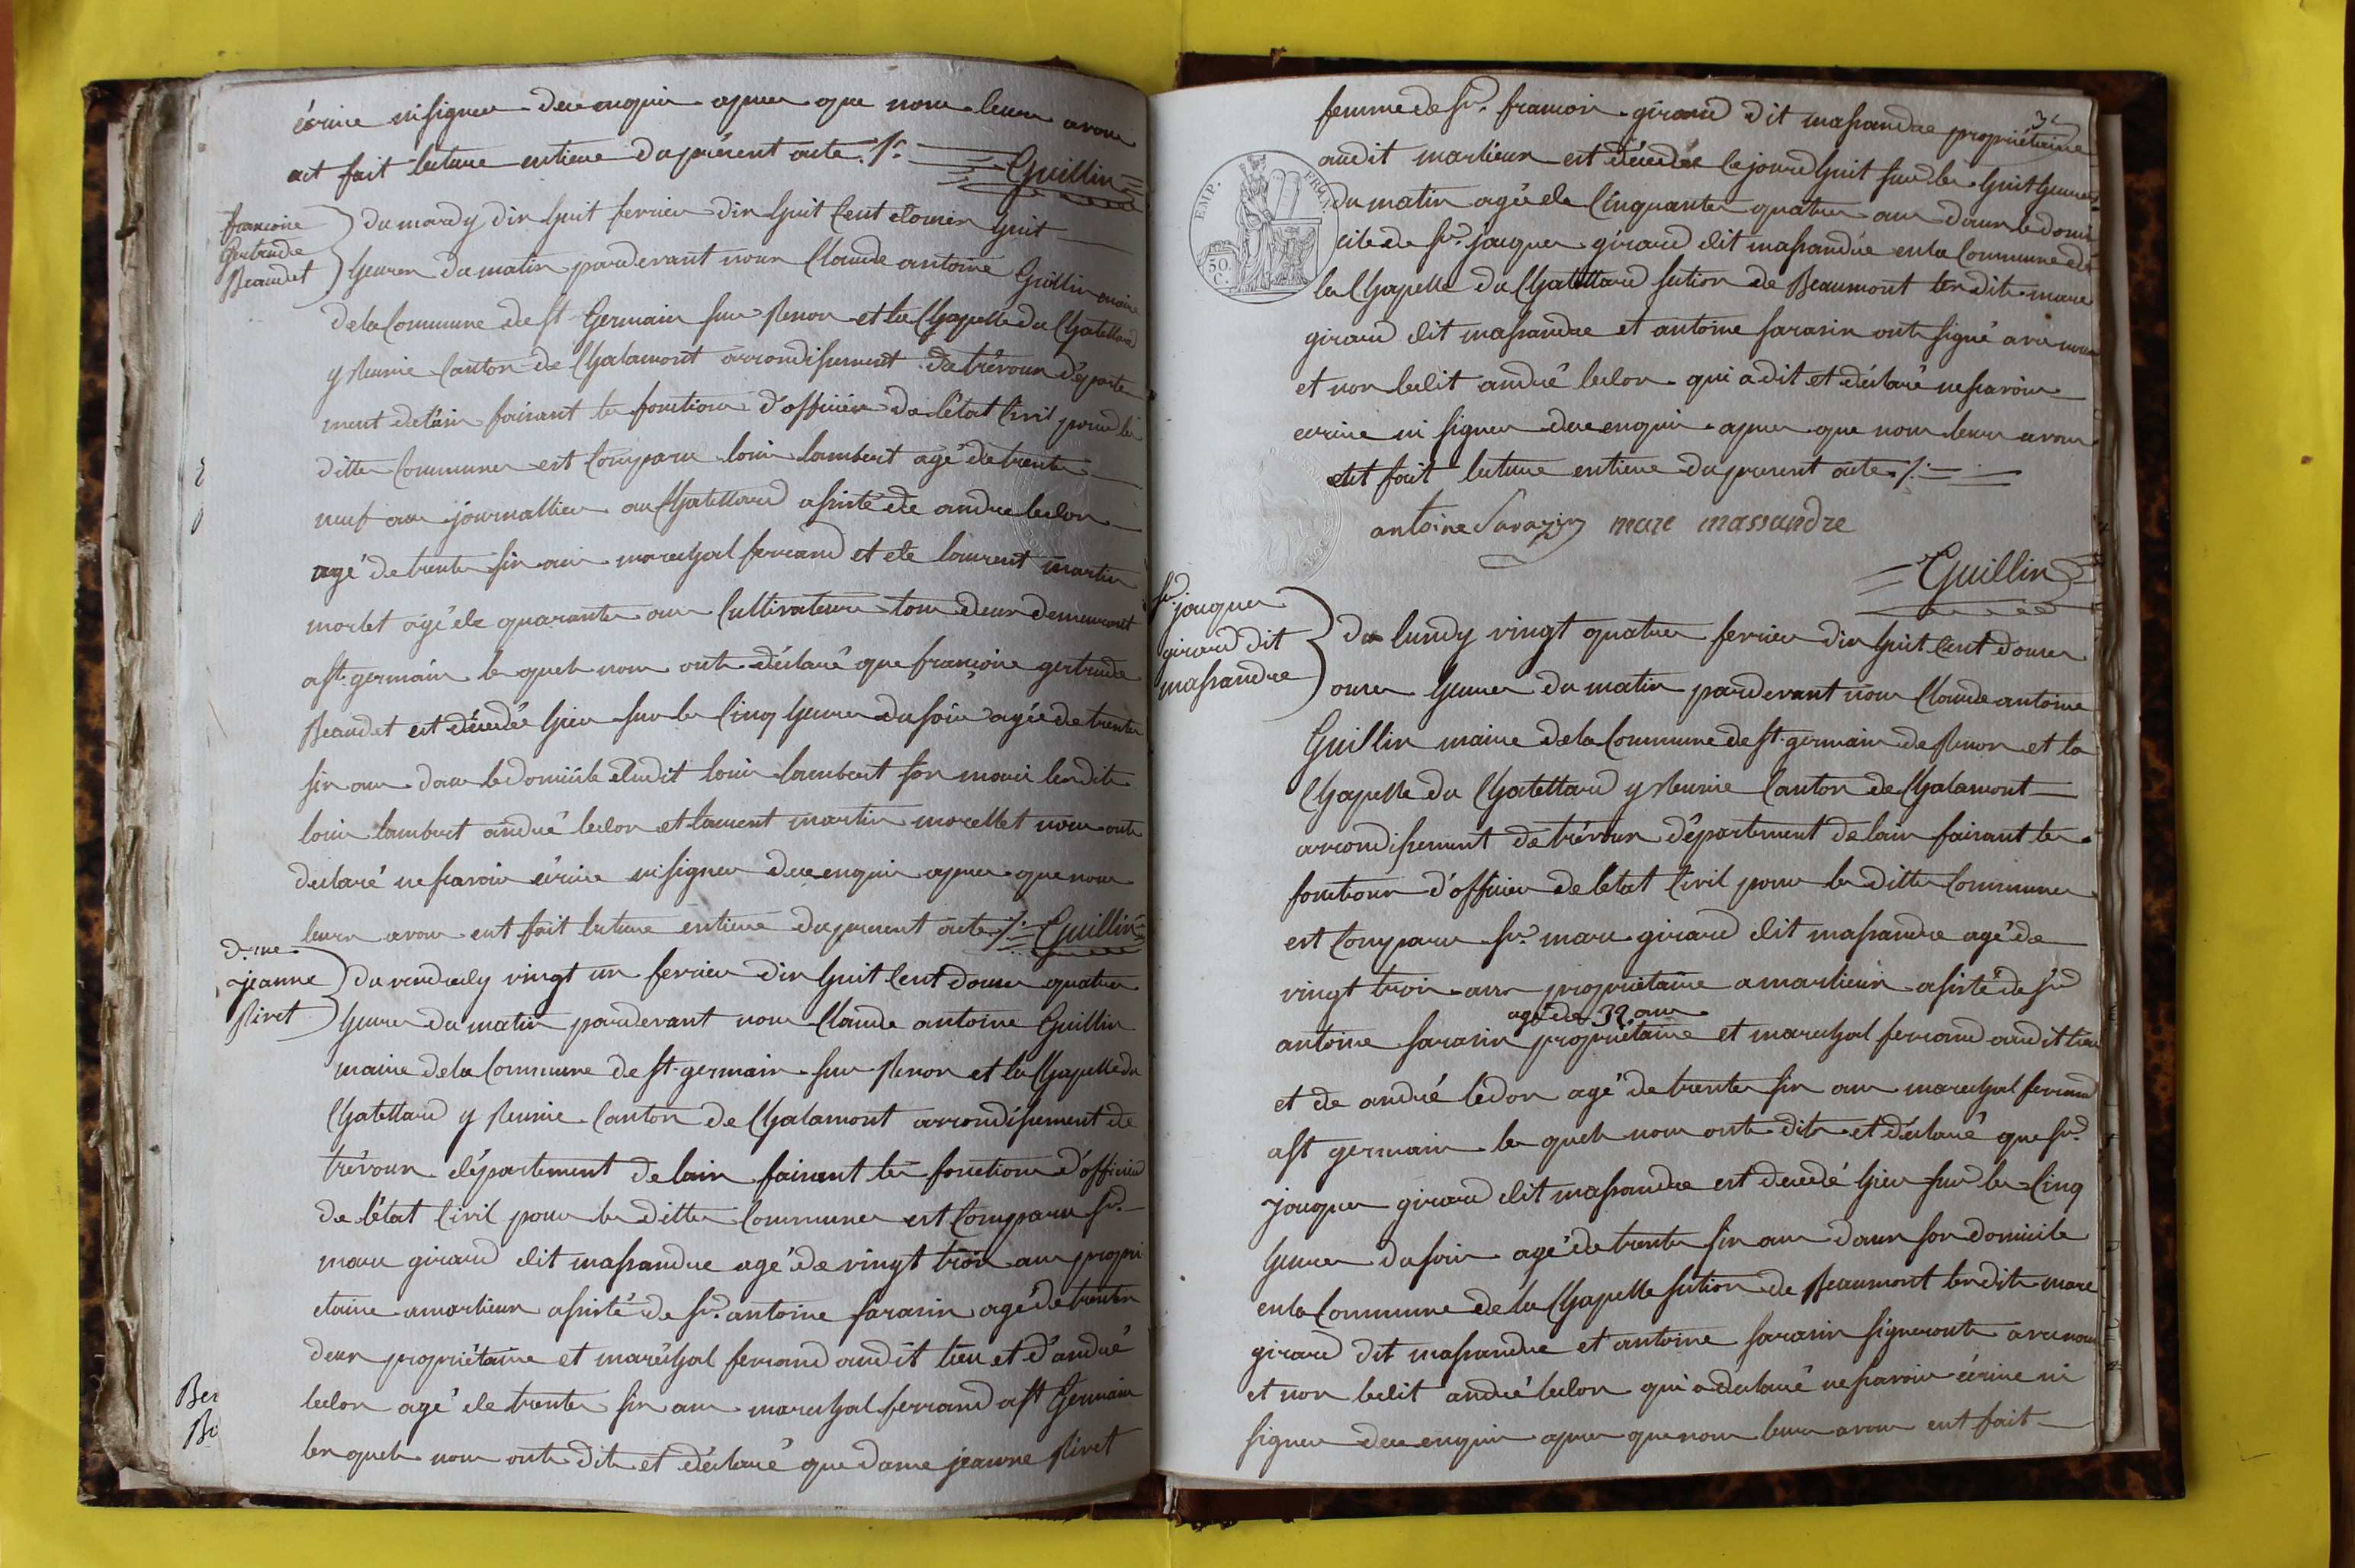 écrire ni signer de ce enquis apres que nous leurs avons
eut fait lecture entiere du présent acte ./.
Guillin
francoise
Gertrude
Beaudet
du mardy dix huit fevrier dix huit cent douze huit
heures du matin pardevant nous Claude antoine Guillin maire
de la Commune de st Germain sur Renon et la Chapelle du Chatellard
y Reunie Canton de Chalamont arrondissement de trévoux départe
ment de l'ain faisant les fonctions d'officier de l'état Civil pour les
dittes Communes est Comparu louis lambert agé de trente
neuf ans journallier au Chatellard assisté de andre ledon
agé de trente six ans marechal ferrand et de laurent martin
morlet agé de quarante ans Cultivateurs tous deux demeurant
a st germain les quels nous ont déclaré que françoise gertrude
Beaudet est décedée hier sur les Cinq heures du soir agée de trente
six ans dans le domicile dudit louis lambert son mari lesdits
louis lambert andré ledon et laurent martin morellet nous ont
declaré ne savoir écrire ni signer de ce enquis apres que nous
leurs avons eut fait lecture entiere du present acte ./. Guillin
d.me
jeanne
Rivet
du vendredy vingt un fevrier dix huit Cent douze quatre
heures du matin pardevant nous Claude antoine Guillin
maire de la Commune de st germain sur Renon et la Chapelle du
Chatellard y Reunie Canton de Chalamont arrondissement de
trévoux département de lain faisant les fonctions d'officier
de l'état Civil pour les dittes Communes est Comparu sr.
marc girard dit massandre agé de vingt trois ans propri
etaire a marlieux assisté de sr. antoine sarasin agé de trente
deux propriétaire et maréchal ferrand audit lieu et d'andré
ledon agé de trente six ans marechal ferrand a st Germain
lesquels nous ont dit et déclaré que dame jeanne Rivet
femme de sr. francois girard dit massandre propriétaire
audit marlieux est décedée cejourdhuit sur les huit heures
du matin agée de Cinquante quatre ans dans le domi
cile de sr. jacques girard dit massandre en la Commune de
la Chapelle du Chatellard section de Beaumont lesdits marc
girard dit massandre et antoine sarasin ont signé avec nous
et non ledit andré ledon qui a dit et déclaré ne savoir
ecrire ni signer de ce enquis apres que nous leurs avons
eut fait lecture entiere du present acte ./.
EMP. FRAN.
50 C.
antoine Sarazin marc massandre
Guillin
sr.
jacques
girard dit
massandre
du lundy vingt quatre fevrier dix huit Cent douze
onze heures du matin pardevant nous Claude antoine
Guillin maire de la Commune de st germain de Renon et la
Chapelle du Chatellard y Reunie Canton de Chalamont
arrondissement de trévoux département de lain faisant les
fonctions d'officier de l'état Civil pour les dittes Communes
est Comparu sr. marc girard dit massandre agé de
vingt trois ans propriétaire a marlieux assisté de sr.
agé de 32 ans
antoine sarasin propriétaire et marechal ferrand audit lieu
et de andré ledon agé de trente six ans marechal ferrand
a st germain les quels nous ont dit et déclaré que sr.
jacques girard dit massandre est decedé hier sur les Cinq
heures du soir agé de trente six ans dans son domicile
en la Commune de la Chapelle section de Beaumont lesdits marc
girard dit massandre et antoine sarasin signeront avec nous
et non ledit andré ledon qui a declaré ne savoir écrire ni
signer de ce enquis apres que nous leurs avons eut fait